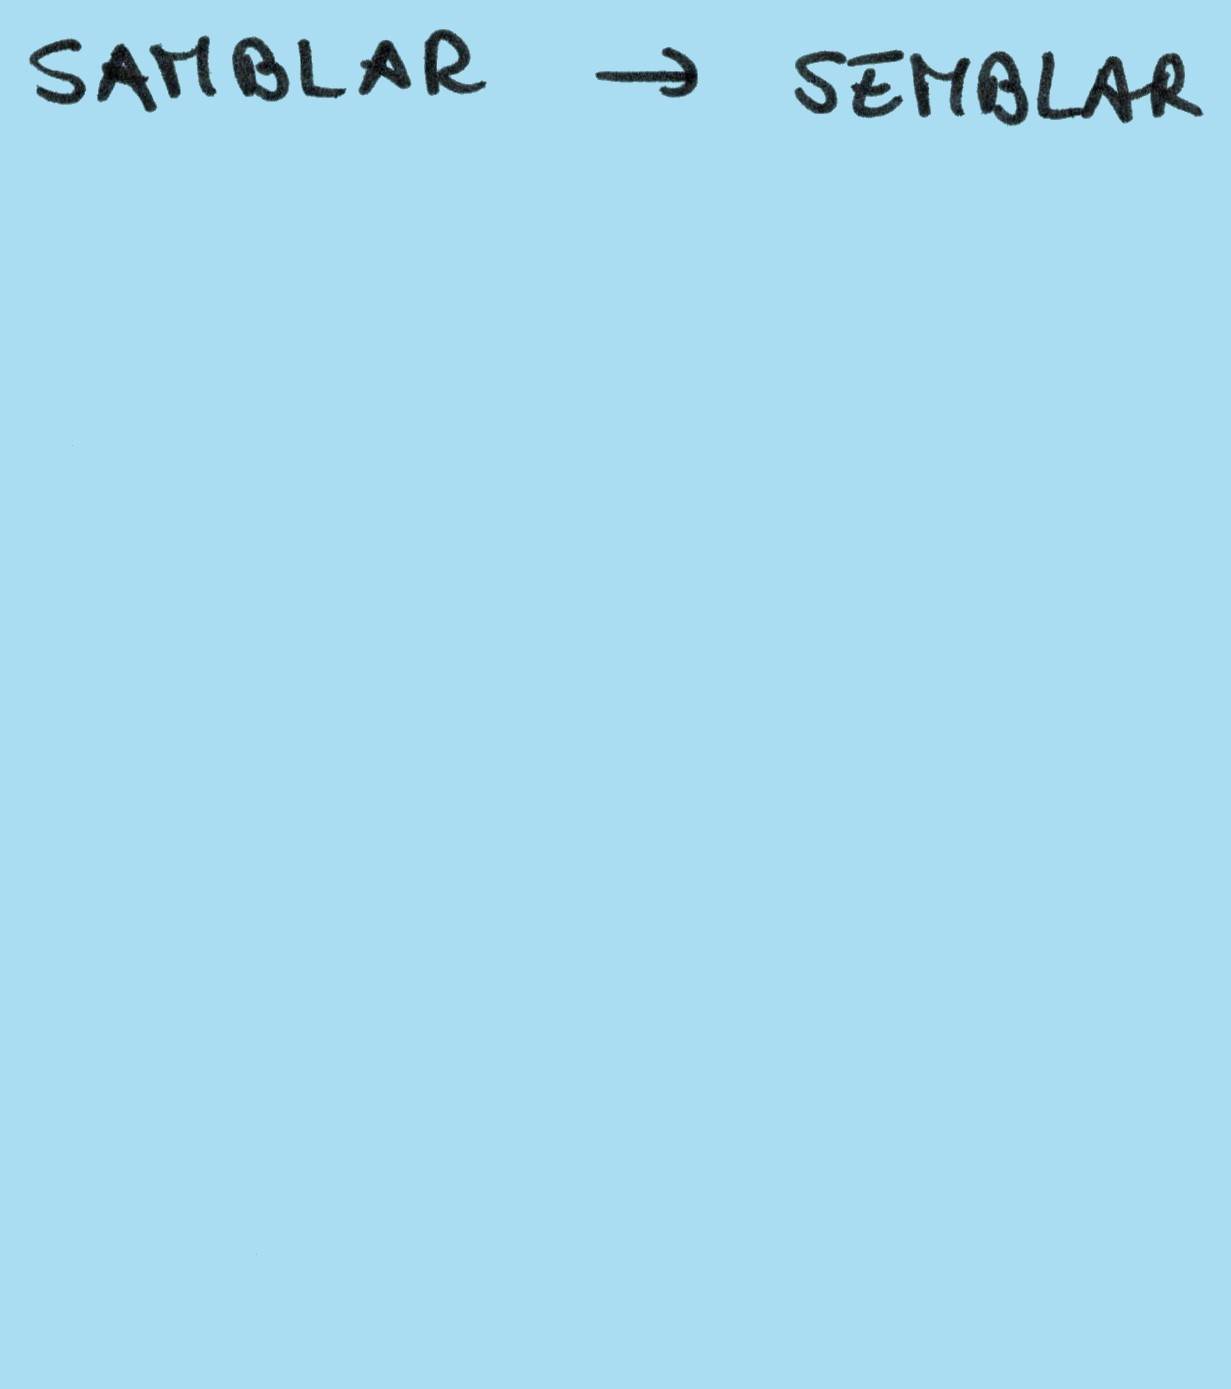 SAMBLAR → SEMBLAR